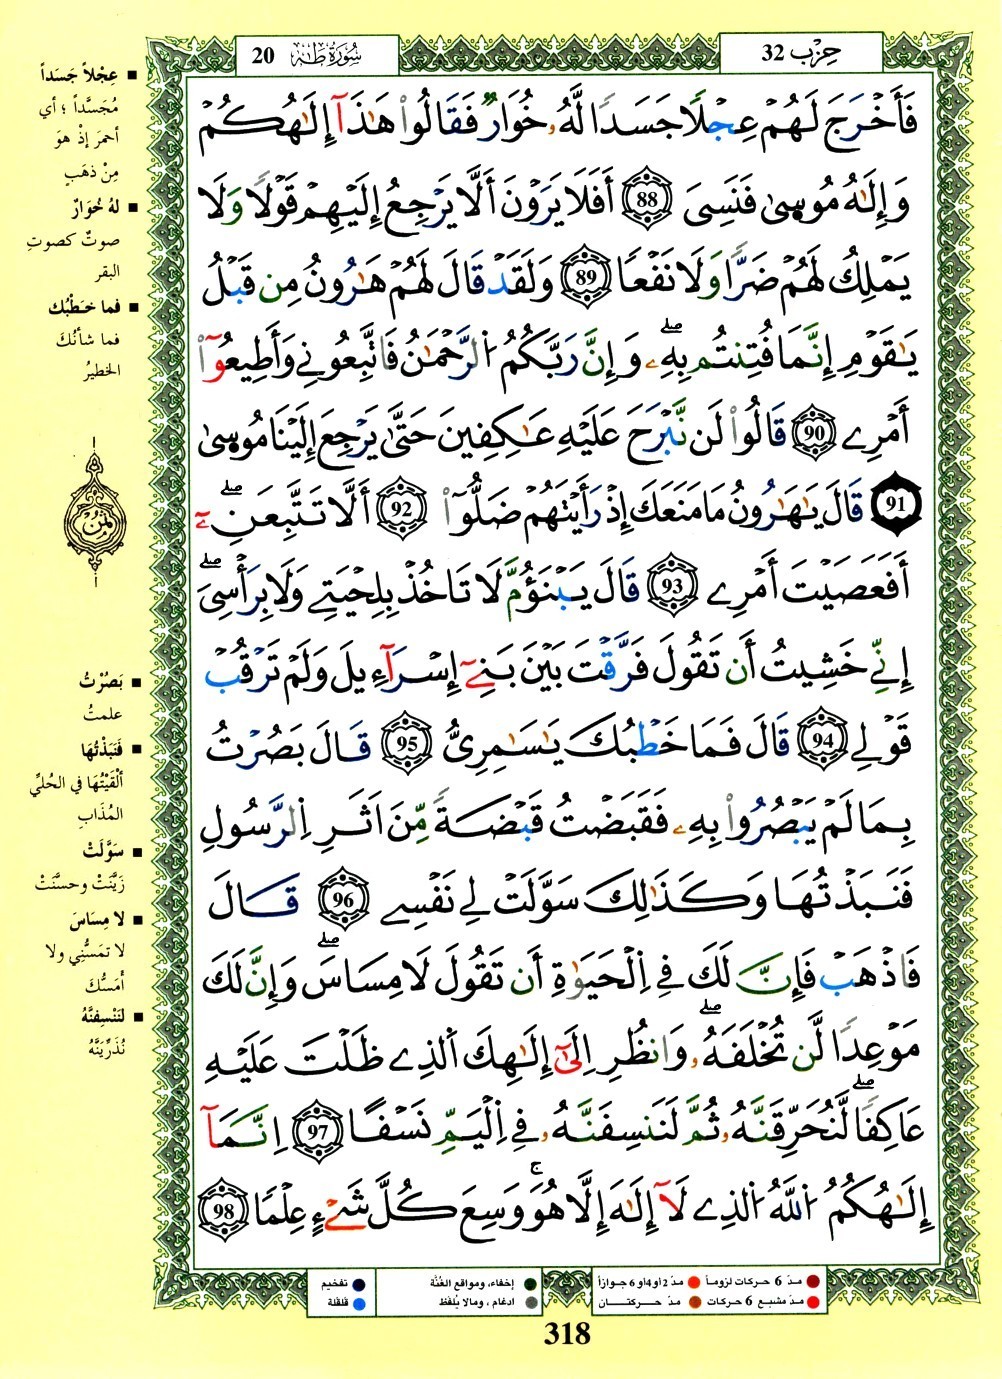 حِزْب 32
سُورَةُ طَهَ 20
فَأَخْرَجَ لَهُمْ عِجْلًا جَسَدًا لَّهُۥ خُوَارٌ فَقَالُوا۟ هَـٰذَآ إِلَـٰهُكُمْ
وَإِلَـٰهُ مُوسِىٰ فَنَسِىَ 88 أَفَلَا يَرَوْنَ أَلَّا يَرْجِعُ إِلَيْهِمْ قَوْلًا وَلَا
يَمْلِكُ لَهُمْ ضَرًّا وَلَا نَفْعًا 89 وَلَقَدْ قَالَ لَهُمْ هَـٰرُونُ مِن قَبْلُ
يَـٰقَوْمِ إِنَّمَا فُتِنتُم بِهِۦ ۖ وَإِنَّ رَبَّكُمُ الرَّحْمَـٰنُ فَاتَّبِعُونِى وَأَطِيعُوٓا۟
أَمْرِى 90 قَالُوا۟ لَن نَّبْرَحَ عَلَيْهِ عَـٰكِفِينَ حَتَّىٰ يَرْجِعَ إِلَيْنَا مُوسِىٰ
91 قَالَ يَـٰهَـٰرُونُ مَا مَنَعَكَ إِذْ رَأَيْتَهُمْ ضَلُّوٓا۟ 92 أَلَّا تَتَّبِعَنِۦٓ ۖ
أَفَعَصَيْتَ أَمْرِى 93 قَالَ يَبْنَؤُمَّ لَا تَاخُذْ بِلِحْيَتِى وَلَا بِرَأْسِىَ ۖ
إِنِّى خَشِيتُ أَن تَقُولَ فَرَّقْتَ بَيْنَ بَنِىٓ إِسْرَآءِيلَ وَلَمْ تَرْقُبْ
قَوْلِى 94 قَالَ فَمَا خَطْبُكَ يَـٰسَـٰمِرِىُّ 95 قَالَ بَصُرْتُ
بِمَا لَمْ يَبْصُرُوا۟ بِهِۦ فَقَبَضْتُ قَبْضَةً مِّنْ اَثَرِ اِلرَّسُولِ
فَنَبَذْتُهَا وَكَذَٰلِكَ سَوَّلَتْ لِى نَفْسِى 96 قَالَ
فَاذْهَبْ فَإِنَّ لَكَ فِى اِلْحَيَوٰةِ أَن تَقُولَ لَا مِسَاسَ ۖ وَإِنَّ لَكَ
مَوْعِدًا لَّن تُخْلَفَهُۥ ۖ وَانظُرِ اِلَىٰٓ إِلَـٰهِكَ اَلَّذِى ظَلْتَ عَلَيْهِ
عَاكِفًا ۖ لَّنُحَرِّقَنَّهُۥ ثُمَّ لَنَنسِفَنَّهُۥ فِى اِلْيَمِّ نَسْفًا 97 اِنَّمَآ
إِلَـٰهُكُمُ اُللَّهُ اُلَّذِى لَآ إِلَـٰهَ إِلَّا هُوَ ۚ وَسِعَ كُلَّ شَىْءٍ عِلْمًا 98
■ عِجْلاً جَسَداً
مُجَسَّداً ؛ أي
أحمرَ إذْ هوَ
مِنْ ذهَبٍ
■ لهُ خُوَارٌ
صوتٌ كصوتِ
البقر
■ فما خَطْبُك
فما شأنُكَ
الخطيرُ
ثُمُن
■ بَصُرْتُ
علمتُ
■ فَنَبَذْتُهَا
ألْقَيْتُهَا في الحُلِيِّ
المُذَابِ
■ سَوَّلَتْ
زَيَّنَتْ وحسَّنَتْ
■ لا مِسَاسَ
لا تمَسُّنِي ولا
أمَسُّكَ
■ لَنَنْسِفنَّهُ
نُذَرِّيَنَّهُ
مدّ 6 حركات لزوماً مدّ 2 أو 4 أو 6 جوازاً
مدّ مشبع 6 حركات مدّ حركتــان
إخفاء، ومواقع الغُنَّة
ادغام ، ومالا يُلفَظ
تفخيم
قلقلة
318